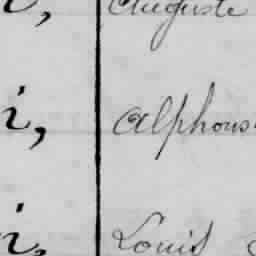 i, Auguste
i, Alphons
i, Louis